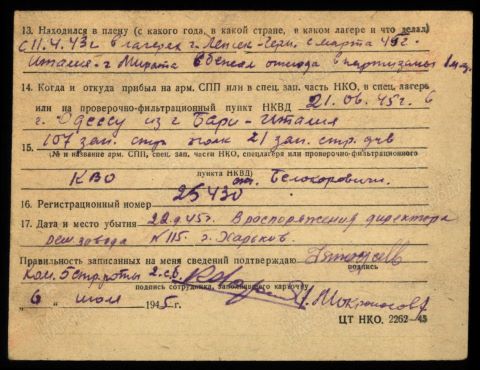 13. Находился в плену (с какого года, в какой стране, в каком лагере и что делал)
с 11.4.43г в лагерях г. с марта 45г
Италия - г в партизаны
14. Когда и откуда прибыл на арм. СПП или в спец. зап. часть НКО, в спец. лагерь
или на проверочно-фильтрационный пункт НКВД 21.06.45г в
г. Одессу из г Бари - Италия
107 зап. стр. полк 21 зап. стр. див
15.
(№ и название арм. СПП, спец. зап. части НКО, спецлагеря или проверочно-фильтрационного
пункта НКВД)
КВО ст. Белокоровичи.
16. Регистрационный номер 25430
17. Дата и место убытия 22.9.45г. В распоряжение директора
завода №115 г. Харьков.
Правильность записанных на меня сведений подтверждаю
подпись
Ком. 5 стр. роты 2 с.б.
подпись сотрудника, заполнявшего карточку
„6 июля 1945г.
ЦТ НКО. 2262-45